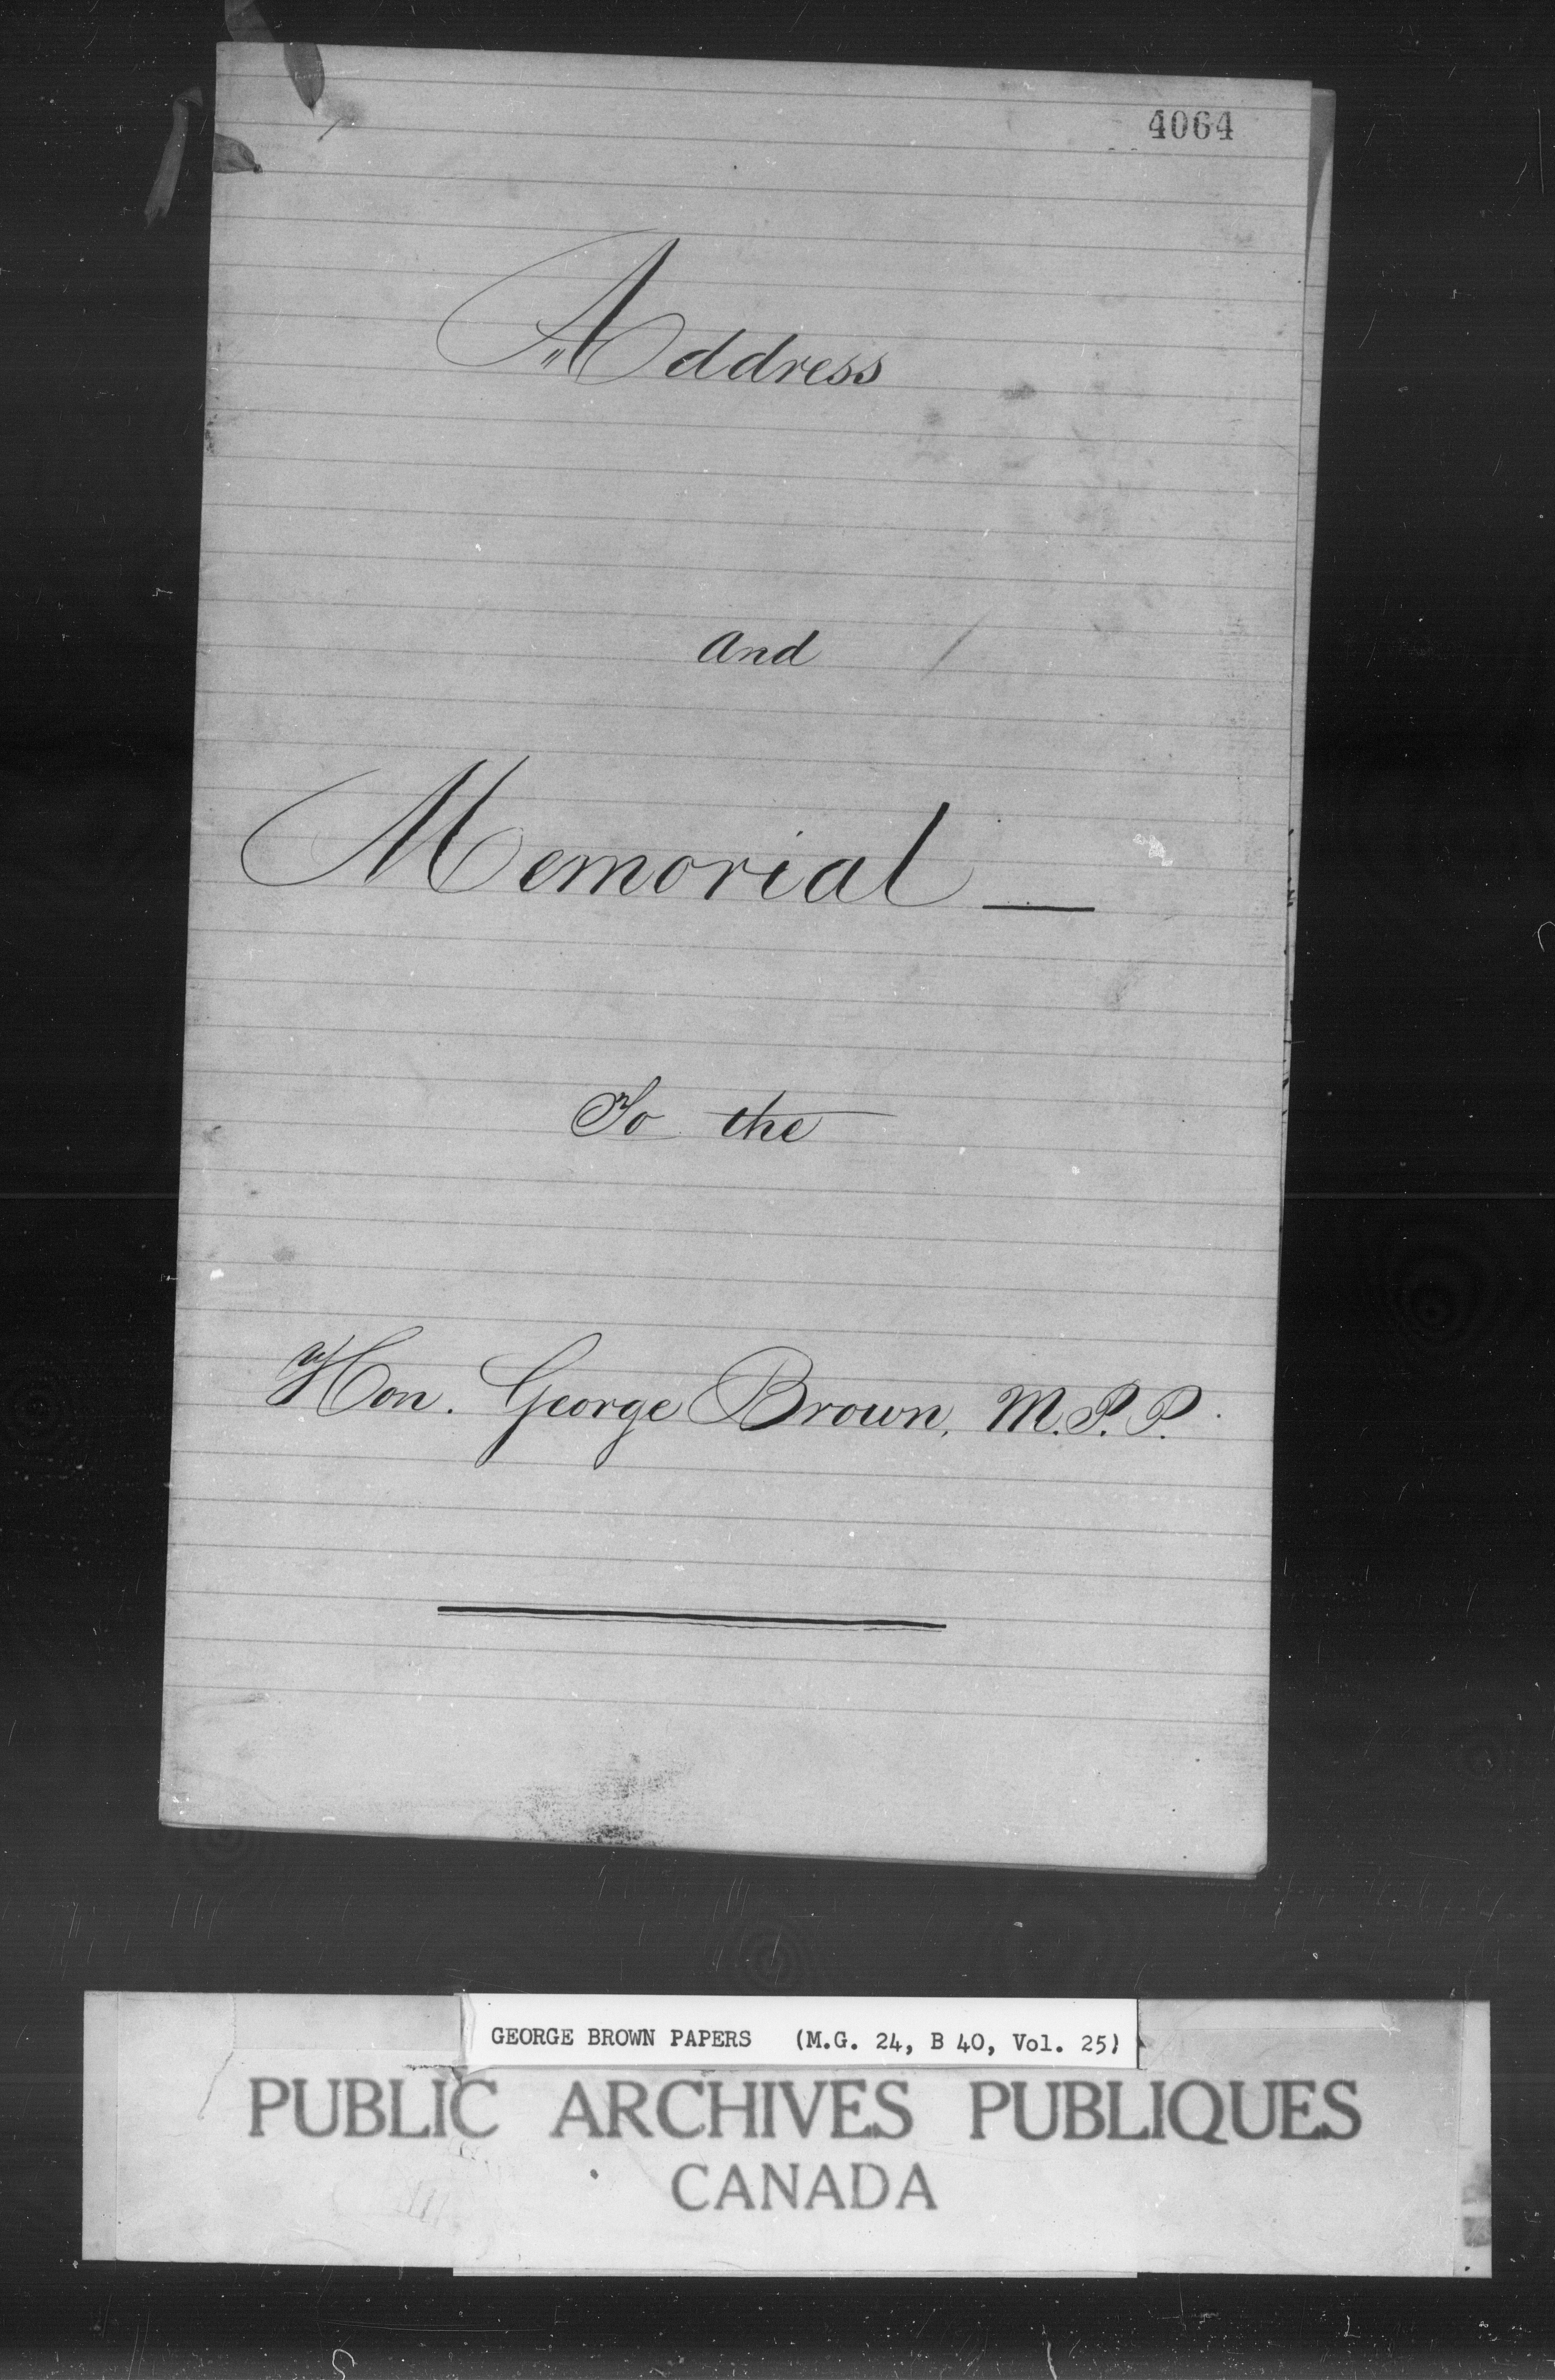 4064
Address
and
Memorial —
To the
Hon. George Brown, M.P.P.
GEORGE BROWN PAPERS (M.G. 24, B 40, Vol. 25)
PUBLIC ARCHIVES PUBLIQUES
CANADA